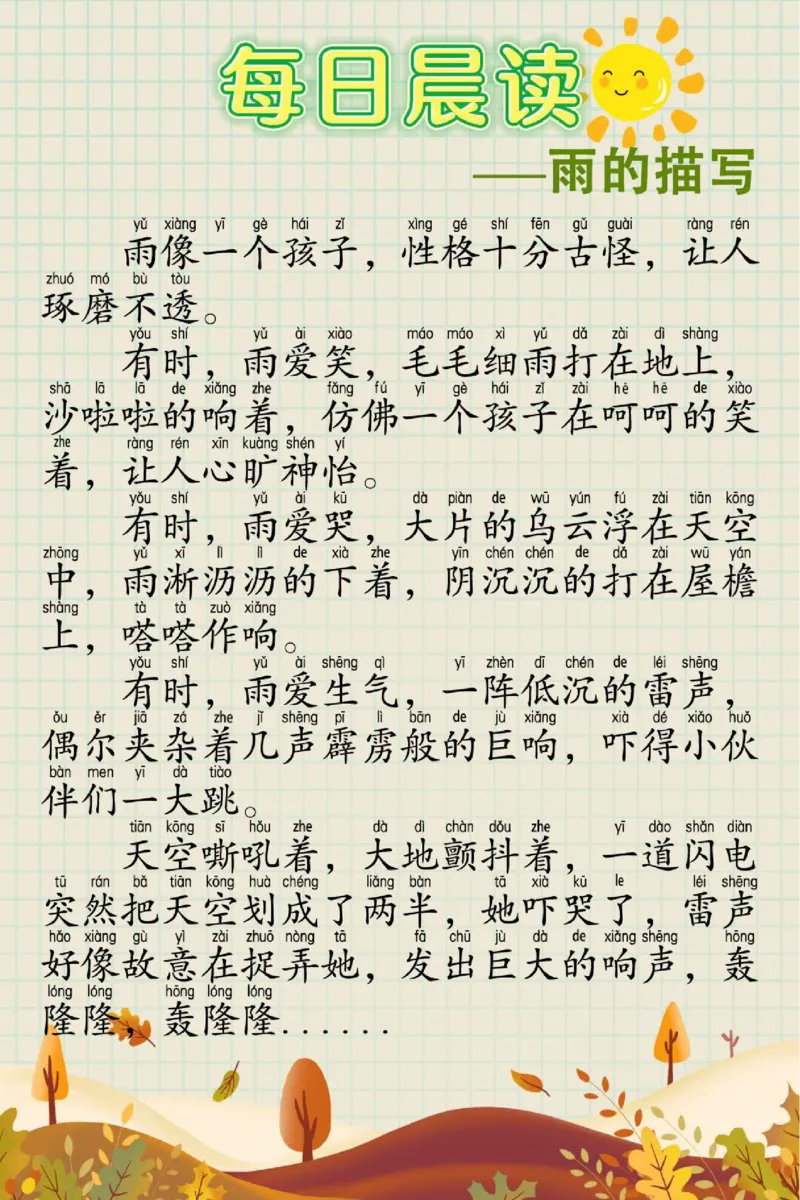 每日晨读
——雨的描写
yǔ xiàng yī gè hái zǐ xìng gé shí fēn gǔ guài ràng rén
雨像一个孩子，性格十分古怪，让人
zhuó mó bù tòu
琢磨不透。
yǒu shí yǔ ài xiào máo máo xì yǔ dǎ zài dì shàng
有时，雨爱笑，毛毛细雨打在地上，
shā lā lā de xiǎng zhe fǎng fú yī gè hái zǐ zài hē hē de xiào
沙啦啦的响着，仿佛一个孩子在呵呵的笑
zhe ràng rén xīn kuàng shén yí
着，让人心旷神怡。
yǒu shí yǔ ài kū dà piàn de wū yún fú zài tiān kōng
有时，雨爱哭，大片的乌云浮在天空
zhōng yǔ xī lì lì de xià zhe yīn chén chén de dǎ zài wū yán
中，雨淅沥沥的下着，阴沉沉的打在屋檐
shàng tà tà zuò xiǎng
上，嗒嗒作响。
yǒu shí yǔ ài shēng qì yī zhèn dī chén de léi shēng
有时，雨爱生气，一阵低沉的雷声，
ǒu ěr jiā zá zhe jǐ shēng pī lì bān de jù xiǎng xià dé xiǎo huǒ
偶尔夹杂着几声霹雳般的巨响，吓得小伙
bàn men yī dà tiào
伴们一大跳。
tiān kōng sī hǒu zhe dà dì chàn dǒu zhe yī dào shǎn diàn
天空嘶吼着，大地颤抖着，一道闪电
tū rán bǎ tiān kōng huà chéng liǎng bàn tā xià kū le léi shēng
突然把天空划成了两半，她吓哭了，雷声
hǎo xiàng gù yì zài zhuō nòng tā fā chū jù dà de xiǎng shēng hōng
好像故意在捉弄她，发出巨大的响声，轰
lóng lóng hōng lóng lóng
隆隆，轰隆隆......